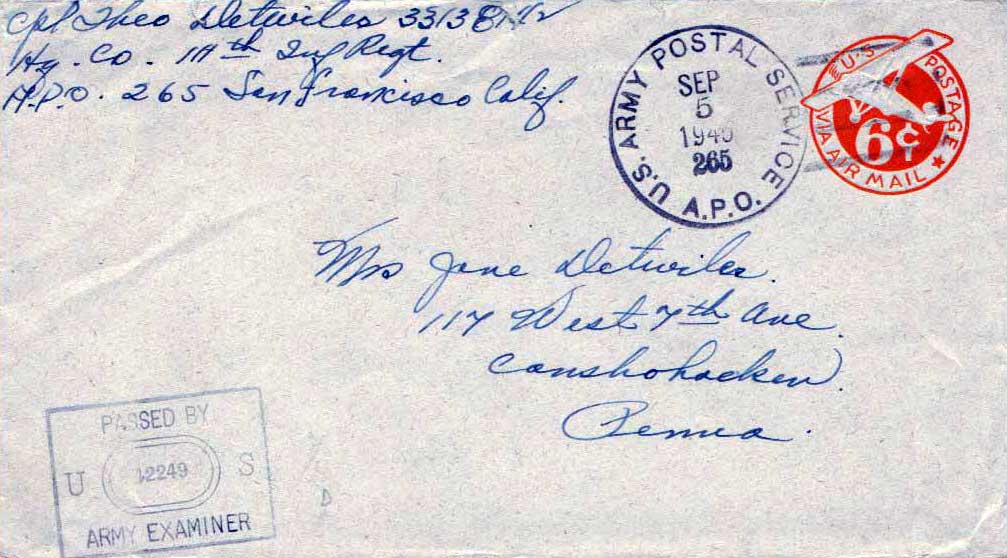 Cpl Theo Detwiler
Hq. Co. 111th Inf Regt.
A.P.O. 265 San Francisco Calif.
U.S. ARMY POSTAL SERVICE
SEP
5
265
A.P.O.
U.S. POSTAGE
6¢
VIA AIR MAIL
Mrs Jane Detwiler.
117 West 7th Ave.
Conshohocken.
Penna.
PASSED BY
U 12249 S
ARMY EXAMINER